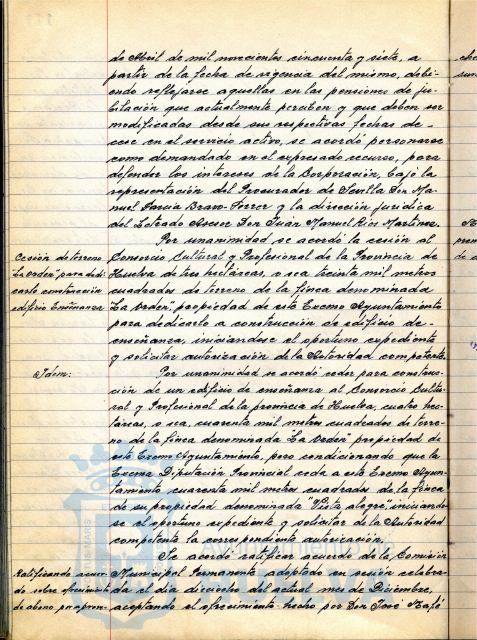 de Abril de mil novecientos cincuenta y siete, a
partir de la fecha de vigencia del mismo, debi-
endo reflejarse aquellas en las pensiones de ju-
bilación que actualmente perciben y que deben ser
modificadas desde sus respectivas fechas de
cese en el servicio activo, se acordó personarse
como demandado en el expresado recurso, para
defender los intereses de la Corporación, bajo la
representación del Procurador de Sevilla Don Ma-
nuel García Bravo-Ferrer y la dirección jurídica
del Letrado Asesor Don Juan Manuel Rios Martinez.
Por unanimidad se acordó la cesión al
Cesión de terreno
"La Orden", para dedi-
carlo construcción
edificio Enseñanza
Consorcio Cultural y Profesional de la Provincia de
Huelva de tres hectáreas, o sea treinta mil metros
cuadrados de terreno de la finca denominada
"La Orden", propiedad de este Excmo Ayuntamiento
para dedicarlo a construcción de edificio de
enseñanza, iniciandose el oportuno expediente
y solicitar autorización de la Autoridad competente.
Idem:
Por unanimidad se acordó ceder para construc-
ción de un edificio de enseñanza al Consorcio Cultu-
ral y Profesional de la provincia de Huelva, cuatro hec-
táreas, o sea, cuarenta mil metros cuadrados de terre-
no de la finca denominada "La Orden" propiedad de
este Excmo Ayuntamiento, pero condicionando que la
Excma Diputación Provincial ceda a este Excmo Ayun-
tamiento cuarenta mil metros cuadrados de la finca
de su propiedad denominada "Vista alegre", iniciando-
se el oportuno expediente y solicitar de la Autoridad
competente la correspondiente autorización.
Se acordó ratificar acuerdo de la Comisión
Ratificando acuer-
do sobre ofrecimiento
de abono, por aprem-
Municipal Permanente adoptado en sesión celebra-
da el día dieciocho del actual mes de Diciembre,
aceptando el ofrecimiento hecho por Don José